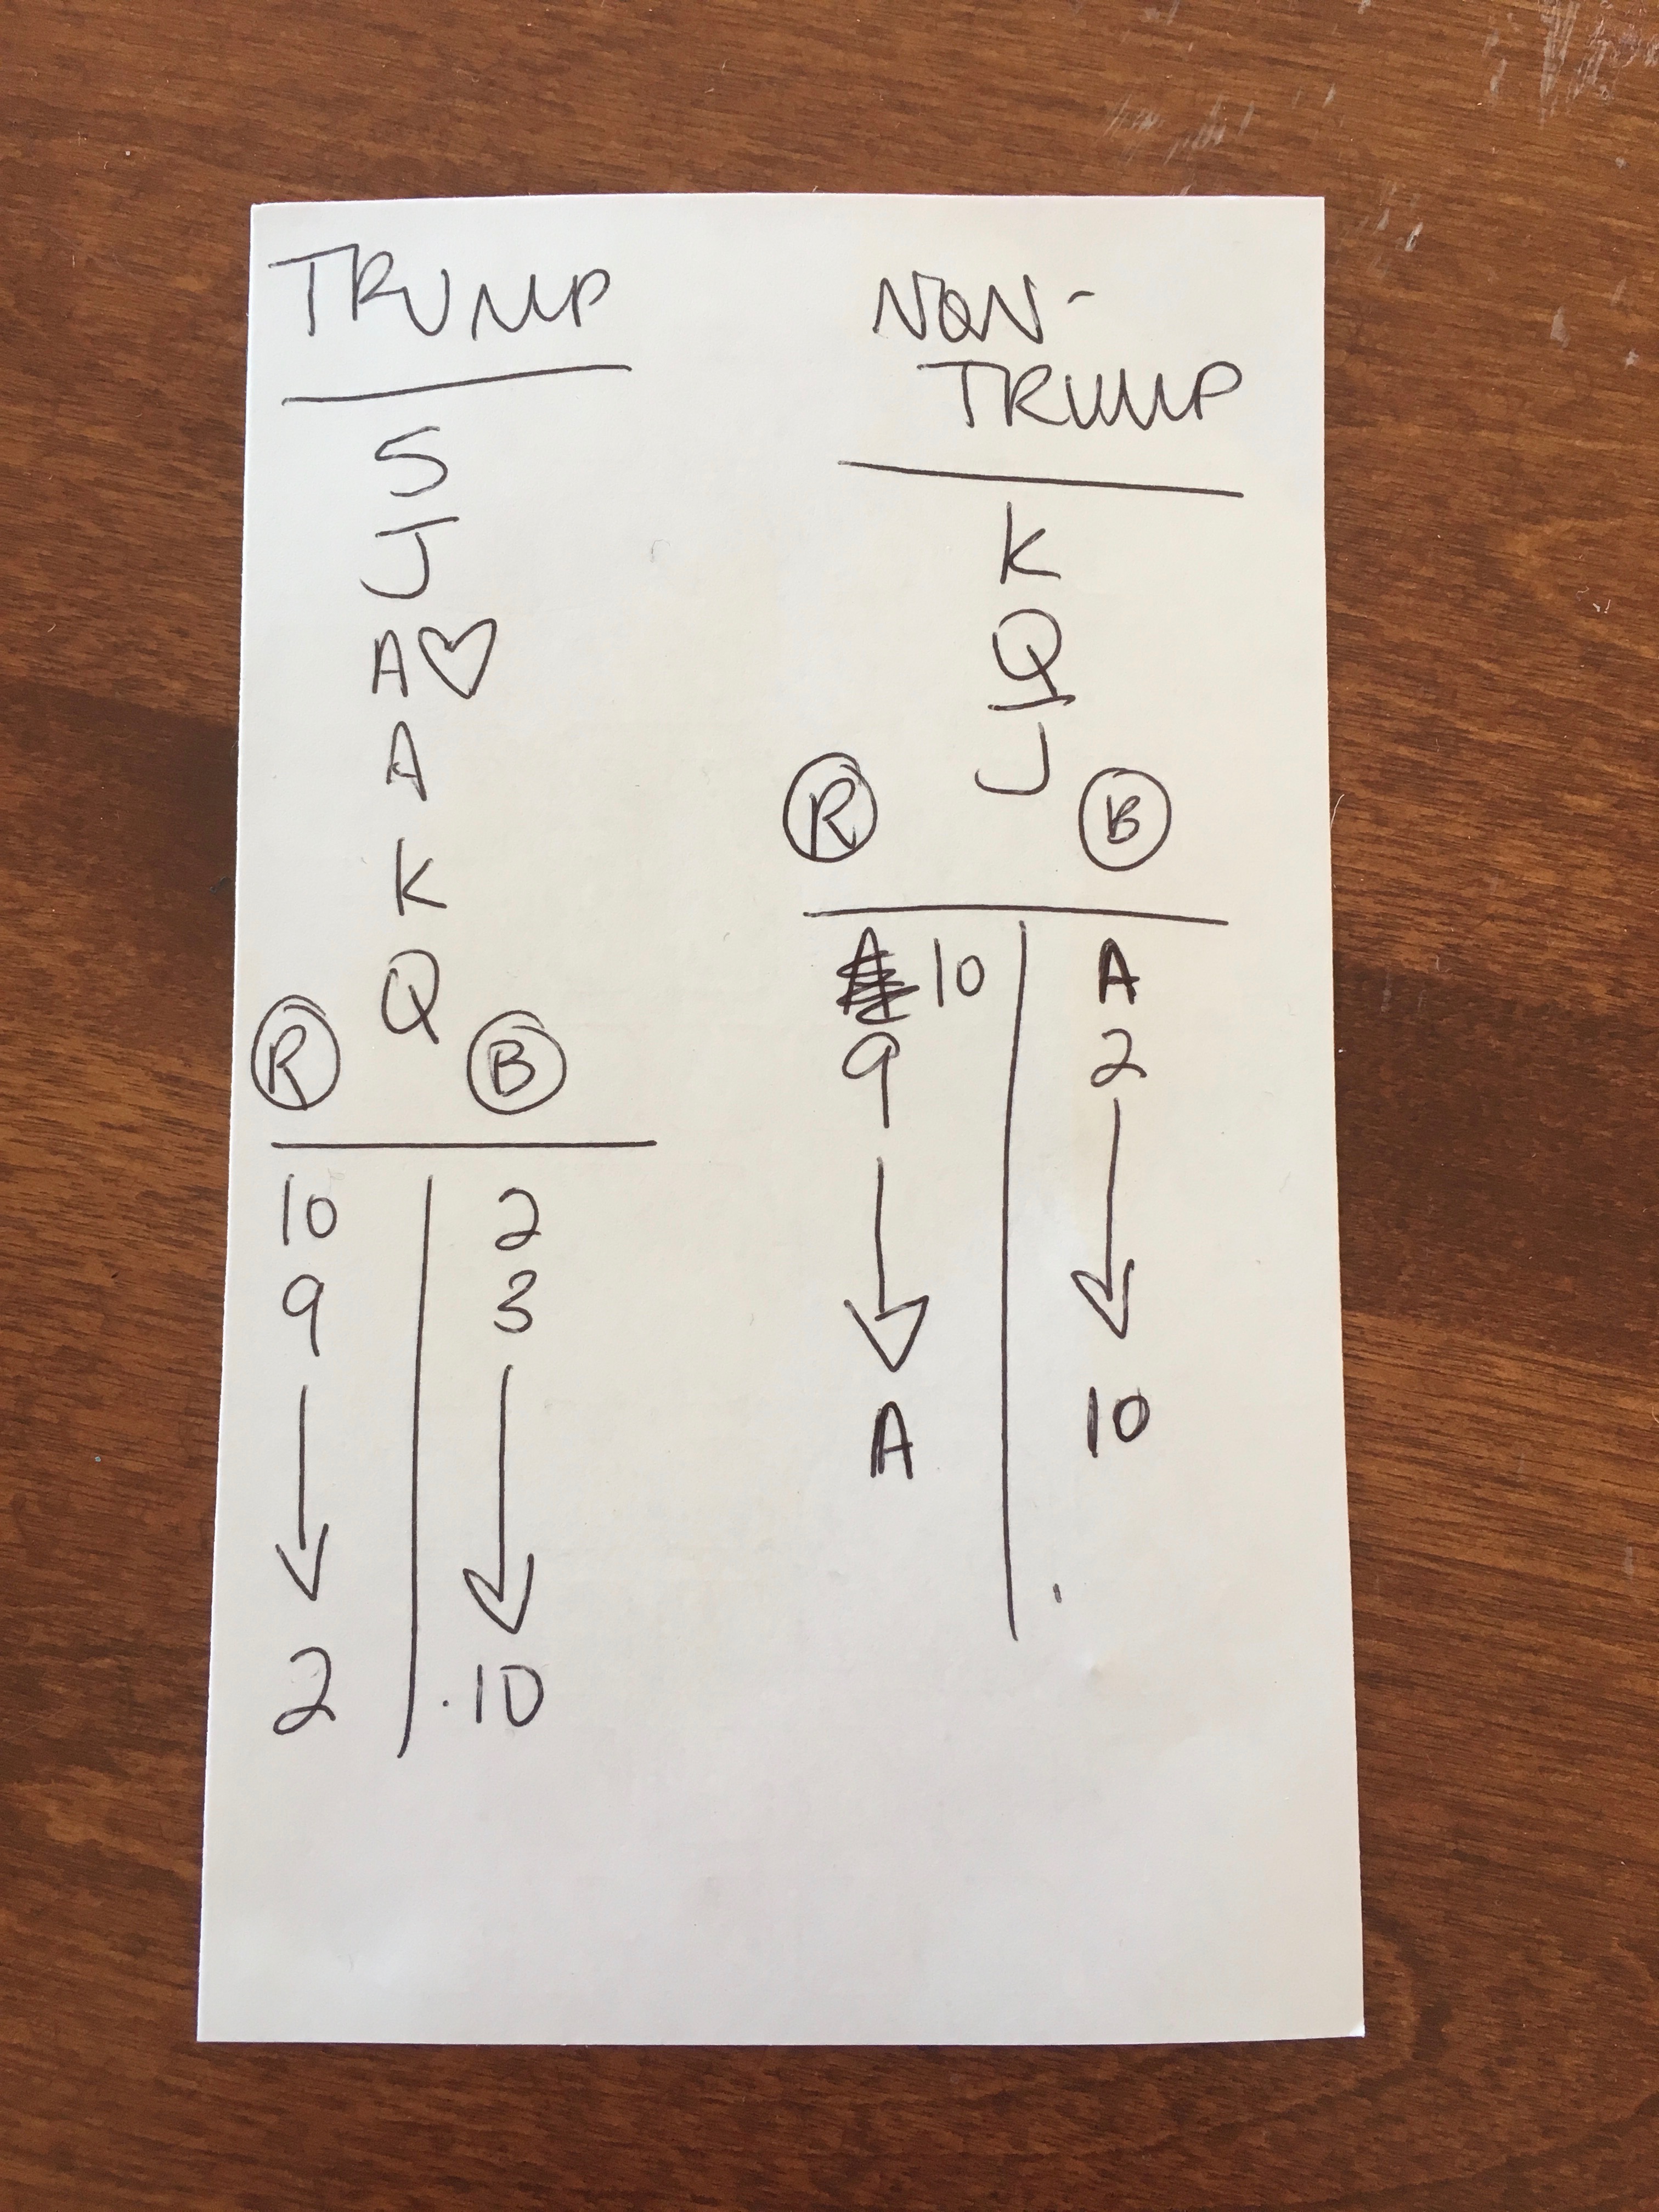 TRUMP
5
J
A♡
A
K
Q
R B
10 2
9 3
2 10
NON-
TRUMP
K
Q
J
R B
10 A
9 2
A 10